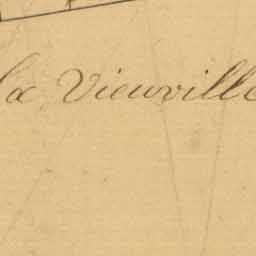 la Vieuville